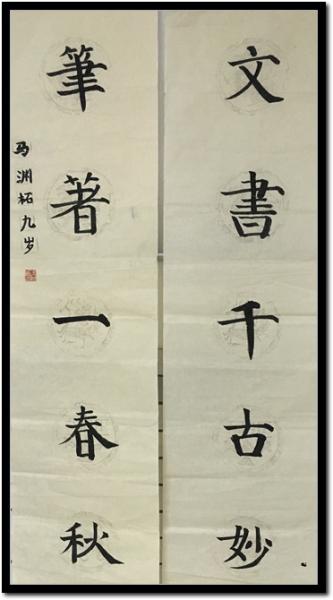 文書千古妙
筆著一春秋
马渊柘九岁